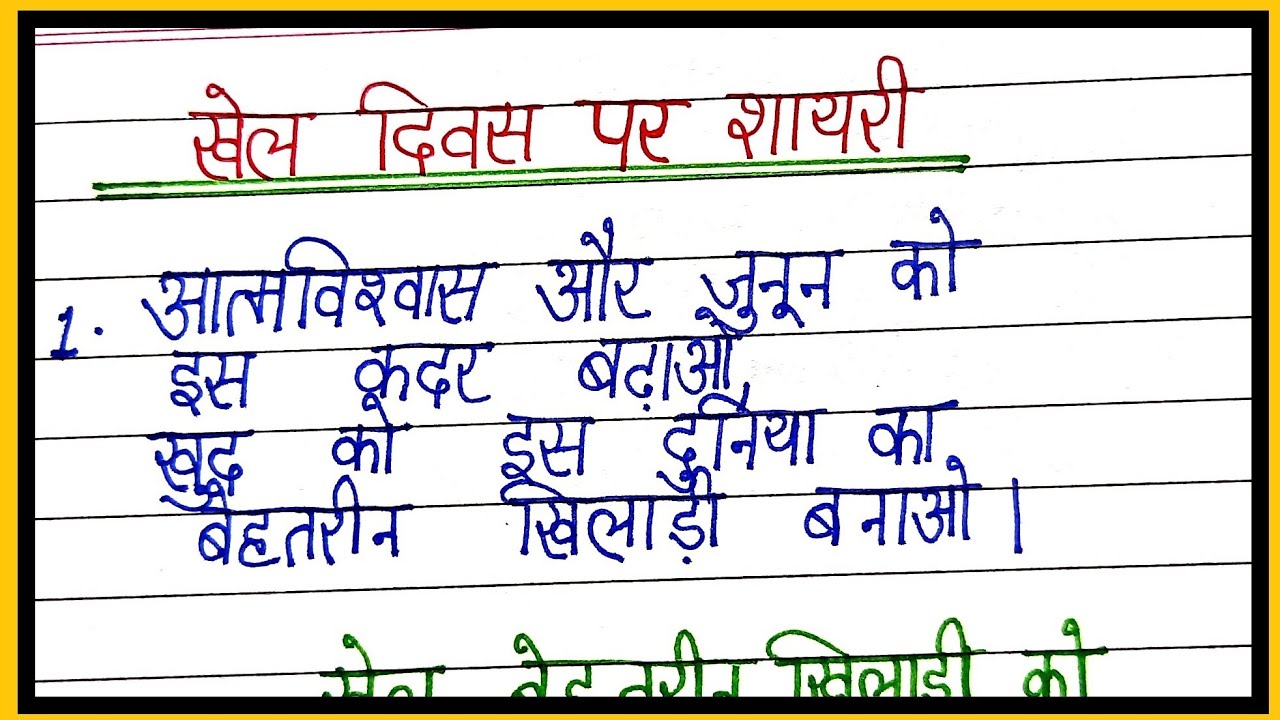 खेल दिवस पर शायरी
1. आत्मविश्वास और जुनून को
इस कदर बढ़ाओ,
खुद को इस दुनिया का
बेहतरीन खिलाड़ी बनाओ।
खेल बेहतरीन खिलाड़ी को